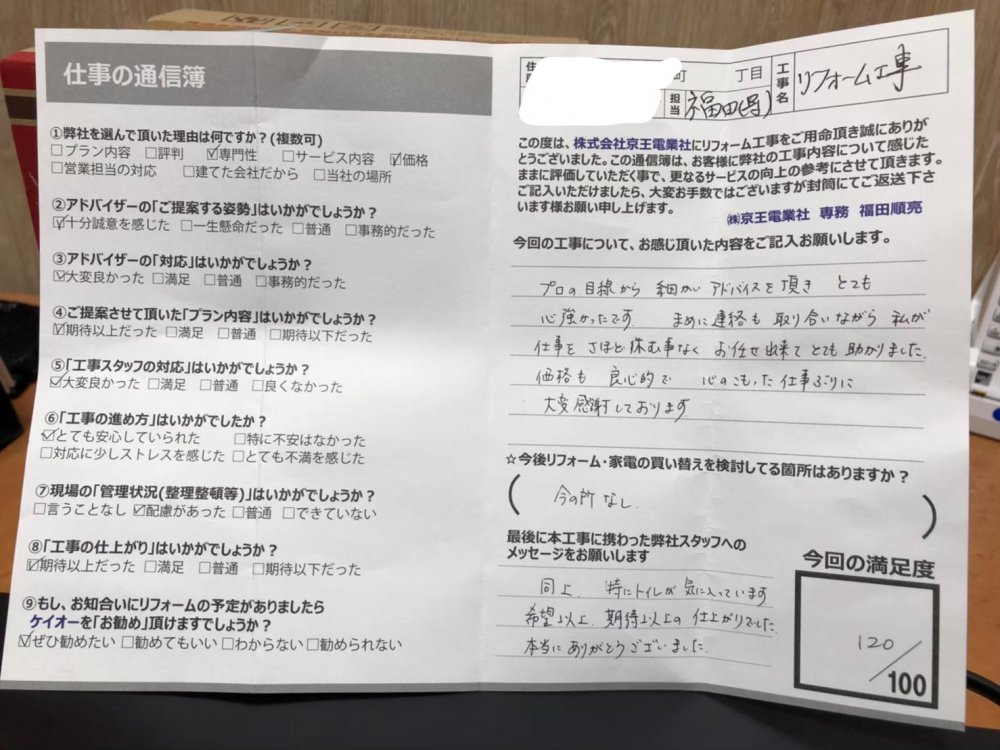 仕事の通信簿
①弊社を選んで頂いた理由は何ですか?(複数可)
□プラン内容 □評判 ☑専門性 □サービス内容 ☑価格
□営業担当の対応 □建てた会社だから □当社の場所
②アドバイザーの「ご提案する姿勢」はいかがでしょうか?
☑十分誠意を感じた □一生懸命だった □普通 □事務的だった
③アドバイザーの「対応」はいかがでしょうか?
☑大変良かった □満足 □普通 □事務的だった
④ご提案させて頂いた「プラン内容」はいかがでしょうか?
☑期待以上だった □満足 □普通 □期待以下だった
⑤「工事スタッフの対応」はいかがでしょうか?
☑大変良かった □満足 □普通 □良くなかった
⑥「工事の進め方」はいかがでしたか?
☑とても安心していられた □特に不安はなかった
□対応に少しストレスを感じた □とても不満を感じた
⑦現場の「管理状況(整理整頓等)」はいかがでしょうか?
□言うことなし ☑配慮があった □普通 □できていない
⑧「工事の仕上がり」はいかがでしょうか?
☑期待以上だった □満足 □普通 □期待以下だった
⑨もし、お知合いにリフォームの予定がありましたら
ケイオーを「お勧め」頂けますでしょうか?
☑ぜひ勧めたい □勧めてもいい □わからない □勧められない
住 町 丁目
担当 福田
工事名 リフォーム工事
この度は、株式会社京王電業社にリフォーム工事をご用命頂き誠にありが
とうございました。この通信簿は、お客様に弊社の工事内容について感じた
ままに評価していただく事で、更なるサービスの向上の参考にさせて頂きます。
ご記入いただけましたら、大変お手数ではございますが封筒にてご返送下さ
います様お願い申し上げます。
㈱京王電業社 専務 福田順亮
今回の工事について、お感じ頂いた内容をご記入お願いします。
プロの目線から 細かい アドバイスを 頂き とても
心強かったです. まめに連絡も 取り合いながら 私が
仕事を さほど休む事なく お任せ出来て とても 助かりました.
価格も 良心的で 心のこもった 仕事ぶりに
大変感謝しております
☆今後リフォーム・家電の買い替えを検討してる箇所はありますか?
( 今の所 なし. )
最後に本工事に携わった弊社スタッフへの
メッセージをお願いします
同上. 特にトイレが 気に入っています
希望以上. 期待以上の 仕上がりでした.
本当に ありがとうございました.
今回の満足度
120/100